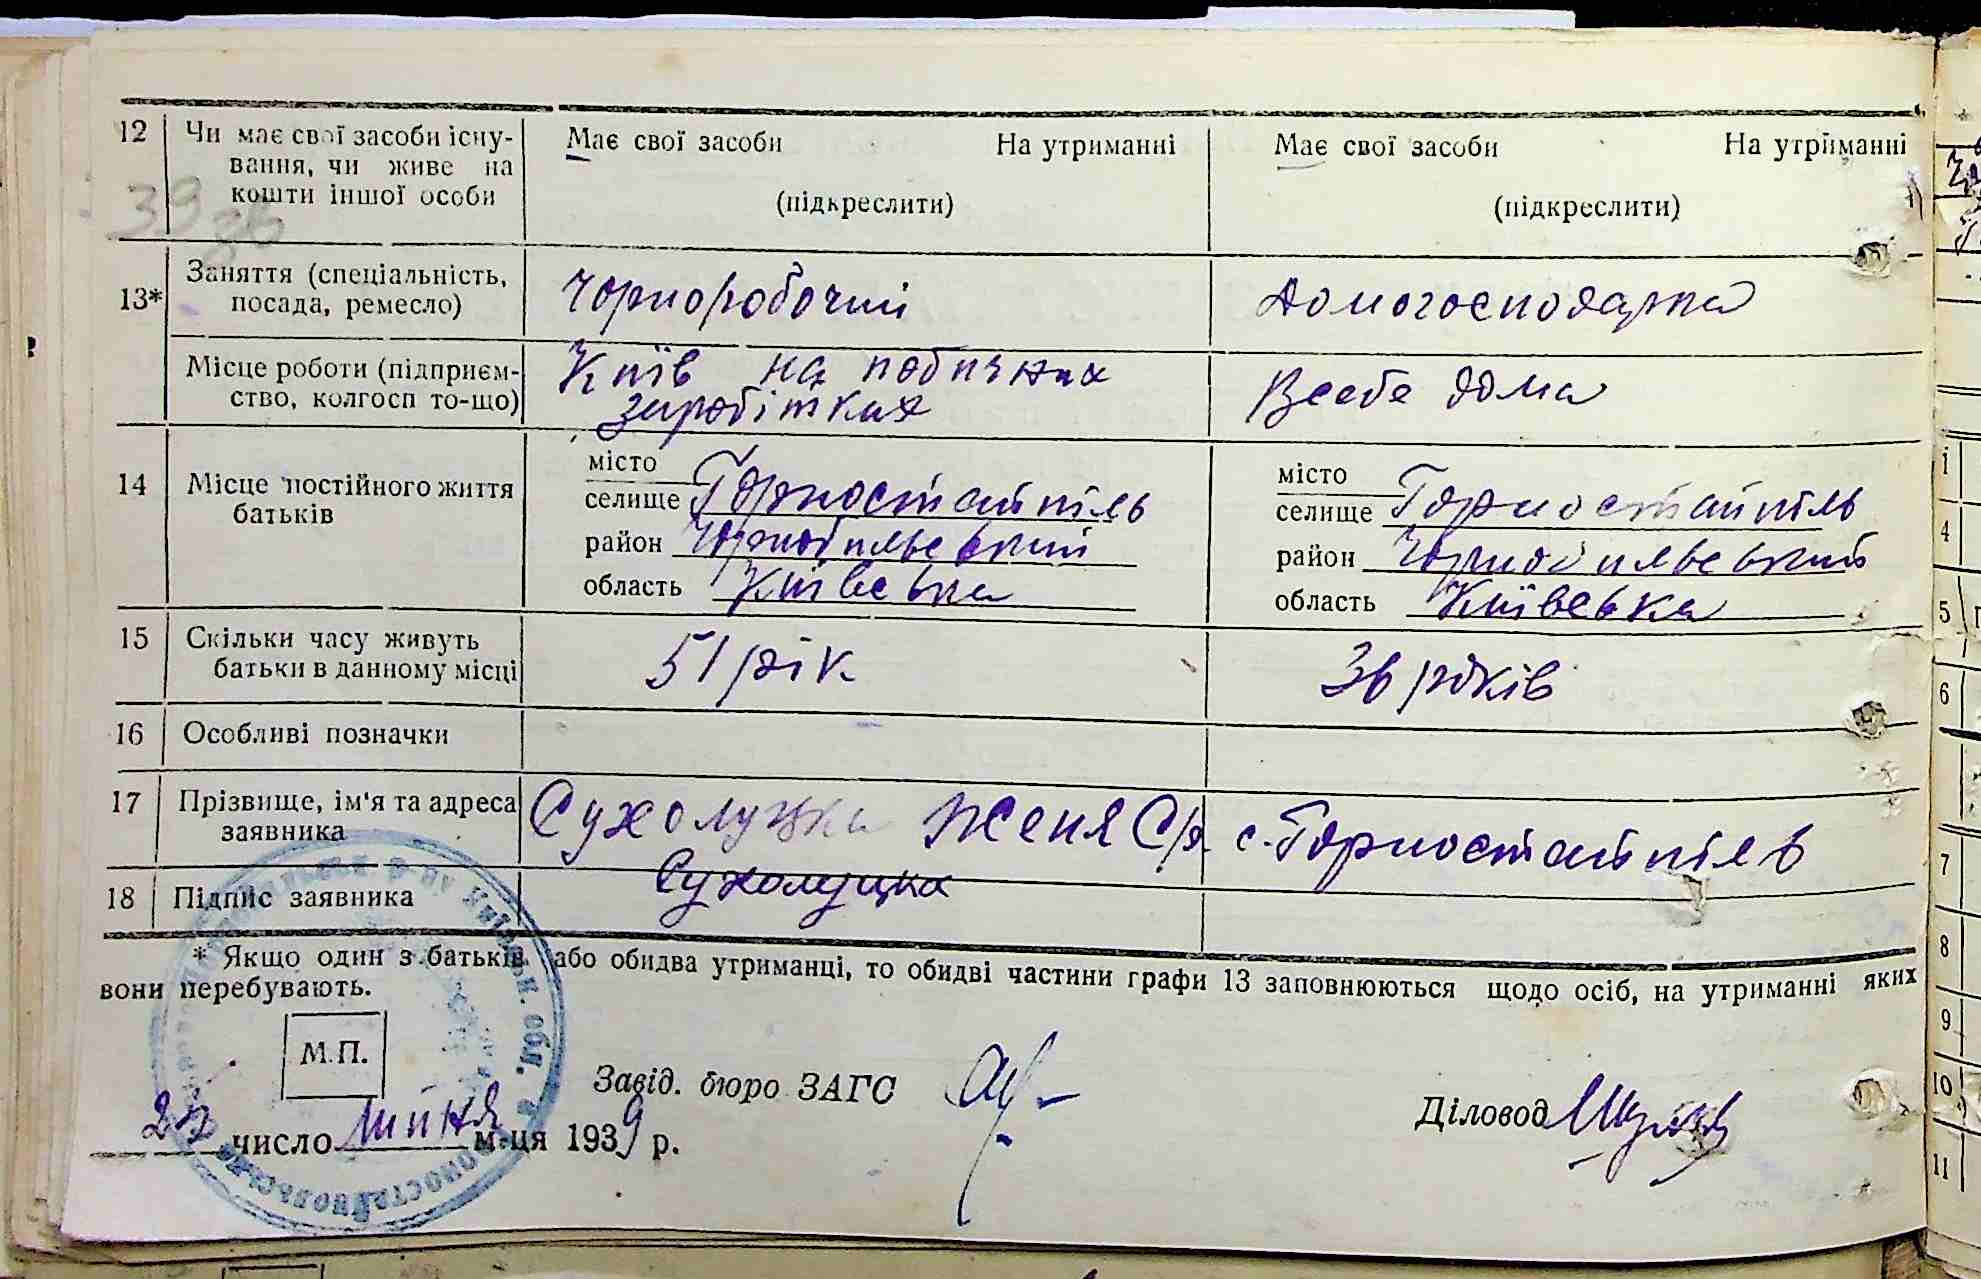 12 Чи має свої засоби існу- Має свої засоби На утриманні Має свої засоби На утриманні
вання, чи живе на
кошти іншої особи (підкреслити) (підкреслити)
39
Заняття (спеціальність, Чорноробочий Домогосподарка
13* посада, ремесло)
Місце роботи (підприєм- Київ на побічних Всебе дома
ство, колгосп то-що) заробітках
14 Місце постійного життя місто місто
батьків селище Горностайпіль селище Горностайпіль
район Чорнобильський район Чорнобильський
область Київська область Київська
15 Скільки часу живуть 51 рік 36 років
батьки в данному місці
16 Особливі позначки
17 Прізвище, ім'я та адреса Сухолуцка Женя с. Горностайпіль
заявника
18 Підпис заявника Сухолуцка
* Якщо один з батьків або обидва утриманці, то обидві частини графи 13 заповнюються щодо осіб, на утриманні яких
вони перебувають.
М.П.
Завід. бюро ЗАГС
Діловод
число липня м-ця 1939 р.
1
4
5
6
7
8
9
10
11